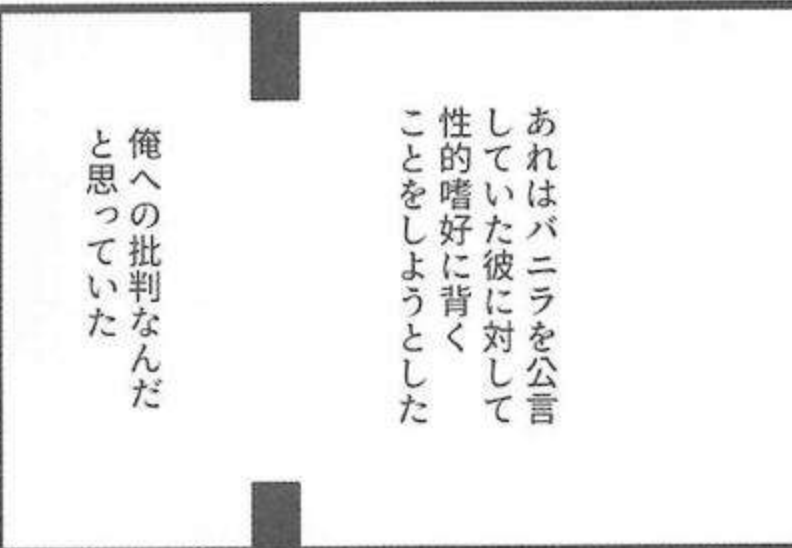 あれはバニラを公言
していた彼に対して
性的嗜好に背く
ことをしようとした
俺への批判なんだ
と思っていた